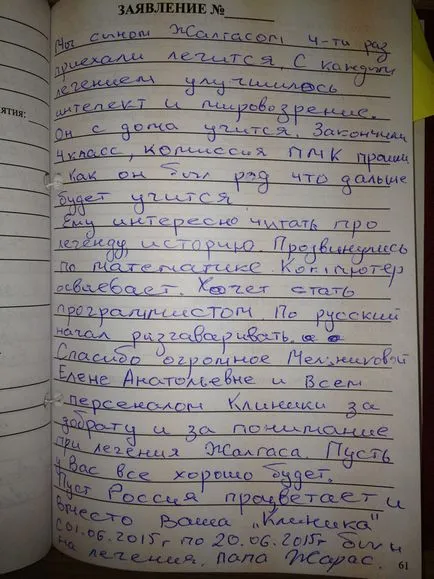 ЗАЯВЛЕНИЕ №
Мы сином Жалгасом 4-ти раз
приехали лечится. С каждым
лечением улучшилось
интелект и мировозрение.
Он с дома учится. Закончили
4 класс, комиссия ПМК прошли
Как он был рад что дальше
будет учится
Ему интересно читать про
легенду, историю. Продвинулись
по математике. Компютер
освяевает. Хочет стать
программистом. По русский
начал разгаваривать.
Спасибо огромное Мельниковой
Елене Анатольевне и Всем
персеналом Клиники за
добрату и за понимание
при лечения Жалгаса. Пусть
у Вас все хорошо будет.
Пуст Россия процветает и
вместо Ваша „Клиника"
С 01.06.2015г по 20.06.2015г был
на лечения. папа Жарас.
61
ятия: